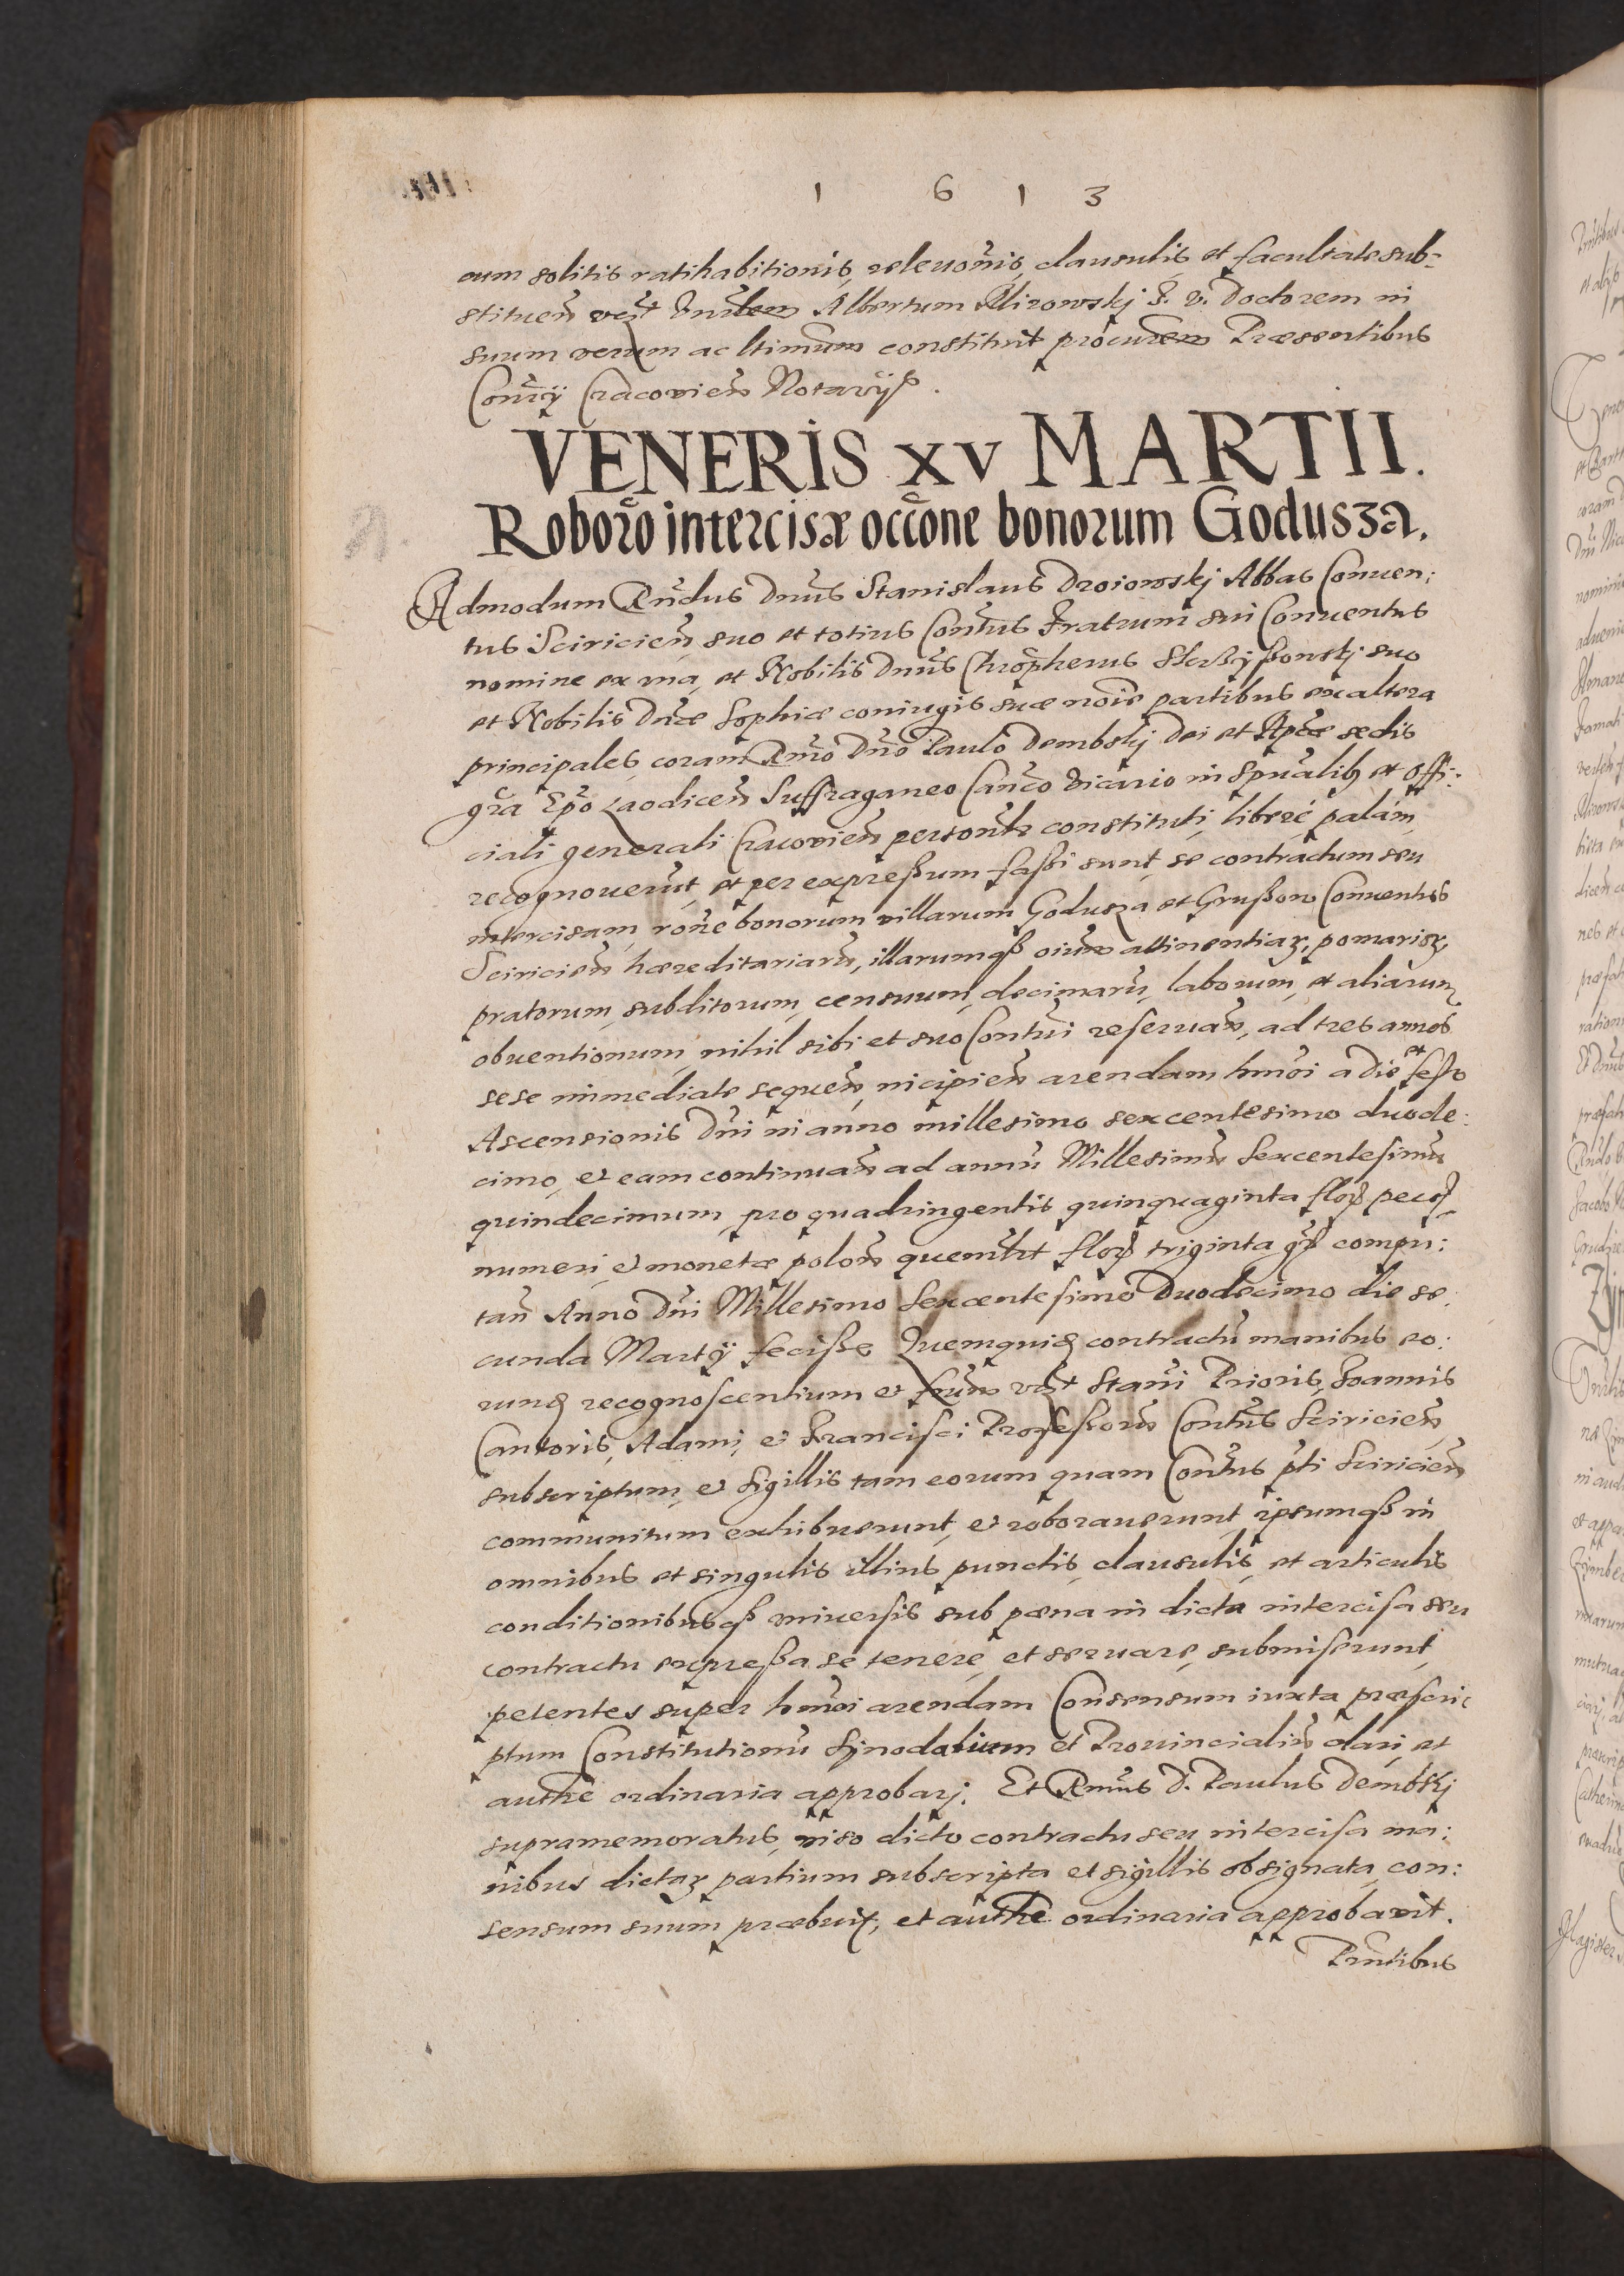 1 6 1 3
cum solitis ratihabitionis, releuoñis, clausulis, et facultate sub-
stituen̄ Albertum Mirowskj J. V. Doctorem in
suum verum ac ltimum constituit procurem Præsentibus
Cracouien̄ Notarijs.
VENERIS XV MARTII.
Roboro͂ intercisæ occo͂ne bonorum Godusza.
Admodum Rn̄dus Dnus Stanislaus Droiowskj Abbas Conuen:
tus Sciricien̄ suo et totius Contus Fratrum sui Conuentus
nomine ex vna, et Nobilis Dnus Chroῖpherus suo
et Nobilis Dnæ Sophiæ coniugis suæ noīe partibus ex altera
principales, coram Rmo Dno Paulo Dembskj Dei et Aplcæ sedis
gr̄a Epo Laodicen̄ Suffraganeo Canco Vicario in Spualibȝ et Offi:
ciali generali Cracouien̄ personlr constituti, liberè, palám,
recognouerut, et per expreßum faßi sunt, se contractum seu
intercisam, ron̄e bonorum villarum Godusza et Grußow Conuentus
Sciricien̄ hæreditariarū, illarumqß oium attinentiaꝝ, pomarioꝝ,
pratorum, subditorum, censuum, decimarū, laborum, et aliarum
obuentionum, nihil sibi et suo Contui reseruan̄, ad tres annos
sese immediate sequen̄, incipien̄ arendam hmōi a die et festo
Ascensionis Dni in anno millesimo sexcentesimo duode:
cimo, et eam continuan̄ ad annū Millesimū Sexcentesimū
quindecimum, pro quadringentis quinquaginta flor pecū
numeri, et monetæ polon̄ quemlt flor triginta gr̄ compu:
tan̄ Anno Dni Millesimo Sexcentesimo Duodecimo die se:
cunda Martij fecisse. Quemquidē contractū manibus eo:
rundē recognoscentium et frum vzt Stani Prioris, Joannis
Cantoris, Adami, et Francisci Profeßorū Contus Sciricien̄,
subscriptum, et Sigillis tam eorum quam Contus pti Sciricien̄
communitum exhibuerunt, et roborauerunt, ipsumqß in
omnibus et singulis illius punctis, clausulis, et articulis
conditionibusqß vniuersis sub pæna in dicta intercisa seu
contractu expreßa se tenere, et seruare, submiserunt,
petentes super hmōi arendam Consensum iuxta præscri:
ptum Constitutionū Synodalium et Prouincialiū dari, et
authe ordinaria approbarj. Et Rmus D. Paulus Dembskj
supramemoratus, viso dicto contractu seu intercisa ma:
nibus dictaꝝ partium subscripta et sigillis obsignata, con:
sensum suum præbuit, et authe ordinaria approbauit.
Prntibus